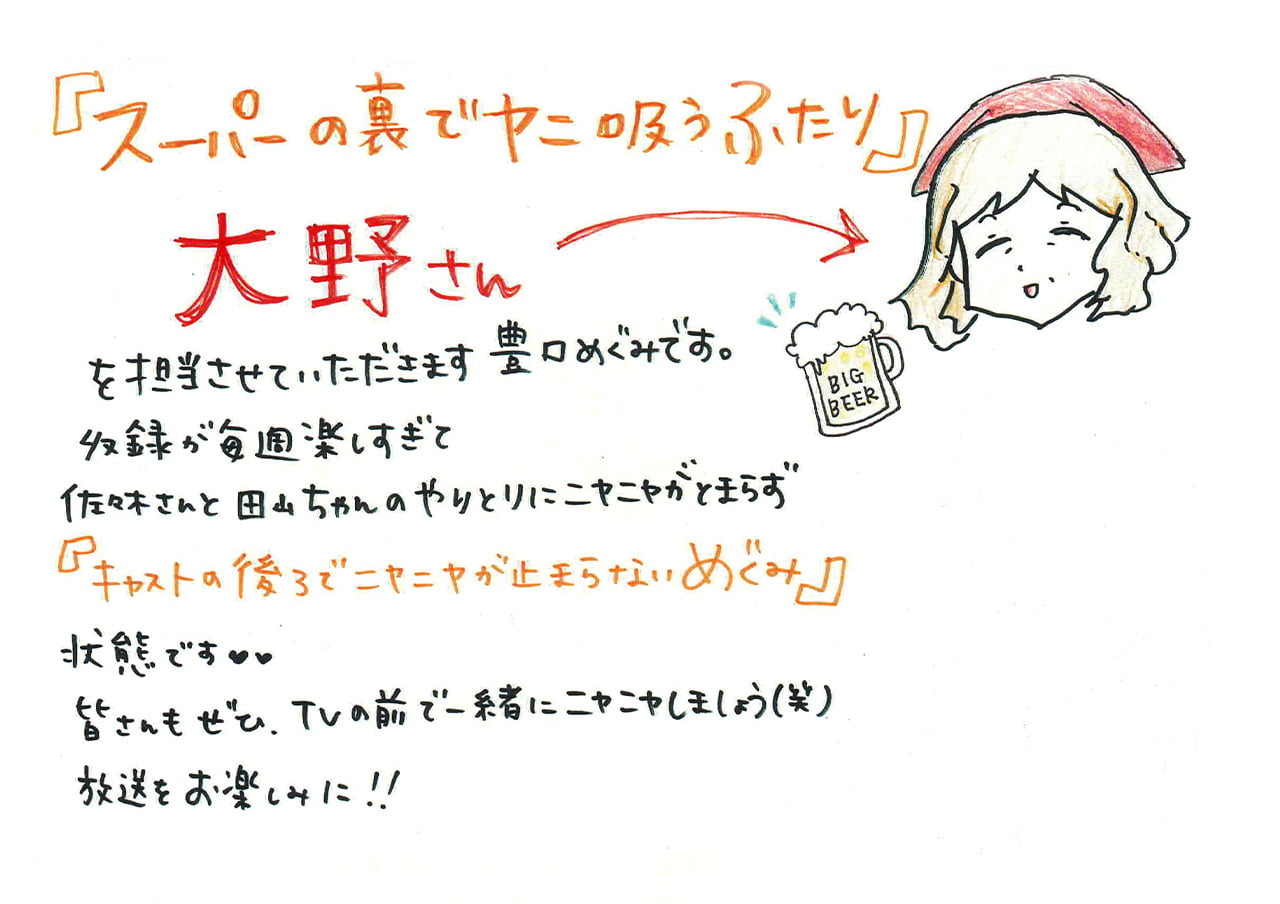 『スーパーの裏でヤニ吸うふたり』
大野さん
を担当させていただきます 豊口めぐみです。
BIG
BEER
収録が毎週楽しすぎて
佐々木さんと田山ちゃんのやりとりにニヤニヤがとまらず
『キャストの後ろでニヤニヤが止まらないめぐみ』
状態です♥♥
皆さんもぜひ、TVの前で一緒にニヤニヤしましょう(笑)
放送をお楽しみに!!